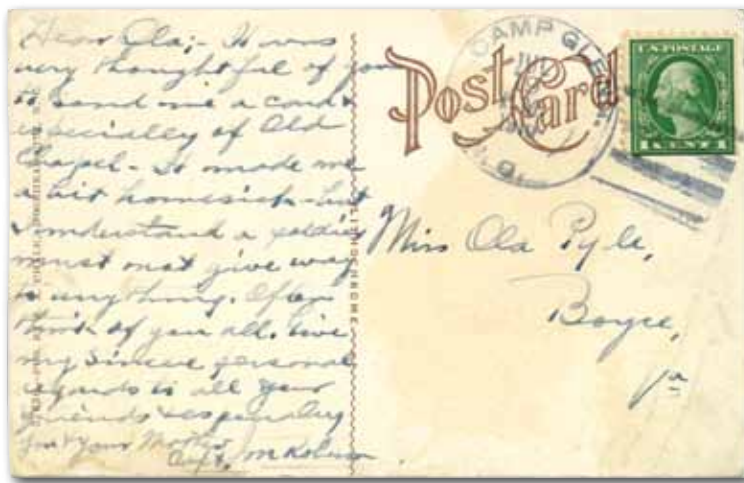 Dear Ola;- It was
very thoughtful of you
to send me a card &
especially of Old
Chapel - It made me
a bit homesick - but
I understand a soldier
must not give way
to anything. Often
think of you all. Give
my sincere personal
regards to all your
friends especially
you & your Mother
Capt.
Post Card
CAMP GLENN
U.S. POSTAGE
1 CENT 1
LITHOCHROME
Miss Ola Pyle,
Boyce,
Va